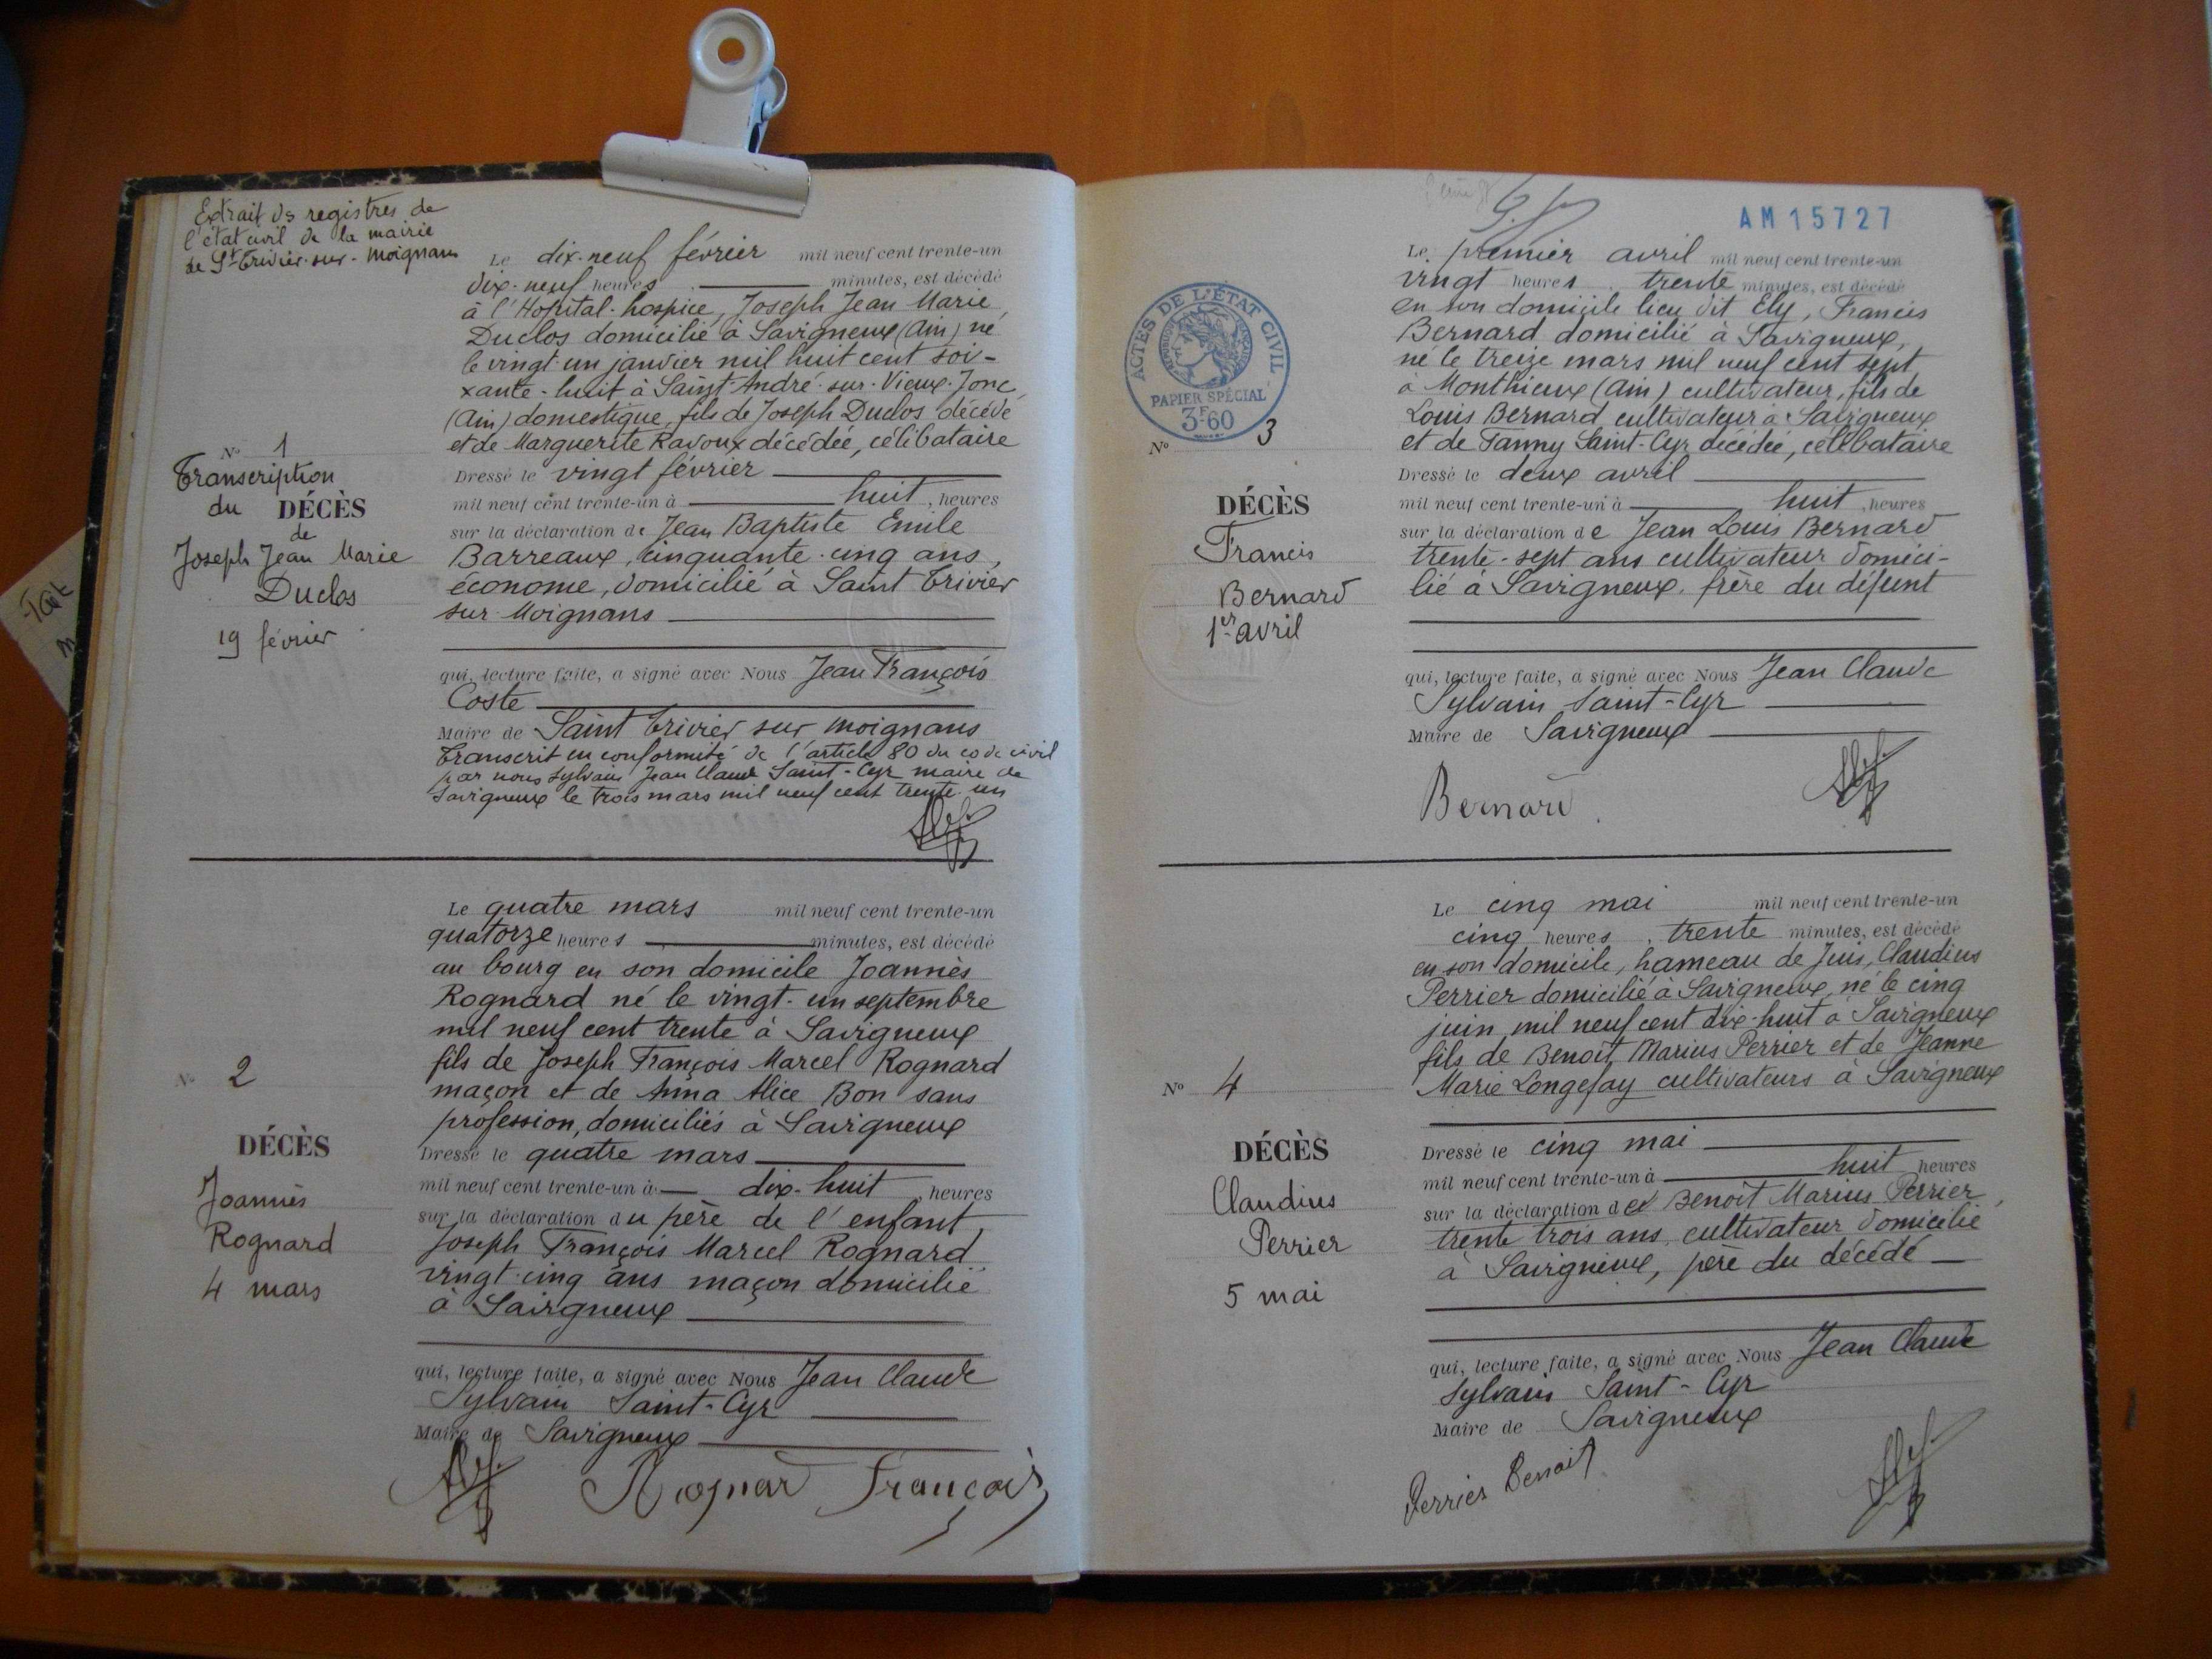 Extrait ds registres de
l'état civil de la mairie
de St Trivier-sur-Moignans
Le dix-neuf février mil neuf cent trente-un
dix-neuf heures minutes, est décédé
à l'Hopital-hospice, Joseph Jean Marie
Duclos domicilié à Savigneux (Ain) né
le vingt-un janvier mil huit cent soi-
xante-huit à Saint-André-sur-Vieux-Jonc
(Ain) domestique, fils de Joseph Duclos décédé
et de Marguerite Ravoux décédée, célibataire
Dressé le vingt février
mil neuf cent trente-un à huit heures
sur la déclaration de Jean Baptiste Emile
Barreaux, cinquante-cinq ans,
économe, domicilié à Saint Trivier
sur Moignans
qui, lecture faite, a signé avec Nous Jean François
Coste
Maire de Saint Trivier sur Moignans
Transcrit en conformité de l'article 80 du code civil
par nous Sylvain Jean Claude Saint-Cyr maire de
Savigneux le trois mars mil neuf cent trente-un
N° 1
Transcription
du DÉCÈS
de
Joseph Jean Marie
Duclos
19 février
Le quatre mars mil neuf cent trente-un
quatorze heures minutes, est décédé
au bourg en son domicile Joannès
Rognard né le vingt-un septembre
mil neuf cent trente à Savigneux
fils de Joseph François Marcel Rognard
maçon et de Anna Alice Bon sans
profession, domiciliés à Savigneux
Dressé le quatre mars
mil neuf cent trente-un à dix-huit heures
sur la déclaration du père de l'enfant,
Joseph François Marcel Rognard
vingt-cinq ans maçon domicilié
à Savigneux
qui, lecture faite, a signé avec Nous Jean Claude
Sylvain Saint-Cyr
Maire de Savigneux
Rognard François
N° 2
DÉCÈS
Joannès
Rognard
4 mars
AM 15727
Le premier avril mil neuf cent trente-un
vingt heures trente minutes, est décédé
en son domicile lieu dit Ely, Francis
Bernard domicilié à Savigneux,
né le treize mars mil neuf cent sept
à Monthieux (Ain) cultivateur, fils de
Louis Bernard cultivateur à Savigneux
et de Fanny Saint-Cyr décédée, célibataire
Dressé le deux avril
mil neuf cent trente-un à huit heures
sur la déclaration de Jean Louis Bernard
trente-sept ans cultivateur domici-
lié à Savigneux, frère du défunt
qui, lecture faite, a signé avec Nous Jean Claude
Sylvain Saint-Cyr
Maire de Savigneux
Bernard
ACTES DE L'ÉTAT CIVIL
PAPIER SPÉCIAL
3F60
N° 3
DÉCÈS
Francis
Bernard
1er avril
Le cinq mai mil neuf cent trente-un
cinq heures trente minutes, est décédé
en son domicile, hameau de Juis, Claudius
Perrier domicilié à Savigneux, né le cinq
juin mil neuf cent dix-huit à Savigneux
fils de Benoit, Marius Perrier et de Jeanne
Marie Longefay cultivateurs à Savigneux
Dressé le cinq mai
mil neuf cent trente-un à huit heures
sur la déclaration de Benoit Marius Perrier,
trente trois ans, cultivateur domicilié
à Savigneux, père du décédé
qui, lecture faite, a signé avec Nous Jean Claude
Sylvain Saint-Cyr
Maire de Savigneux
Perrier Benoit
N° 4
DÉCÈS
Claudius
Perrier
5 mai